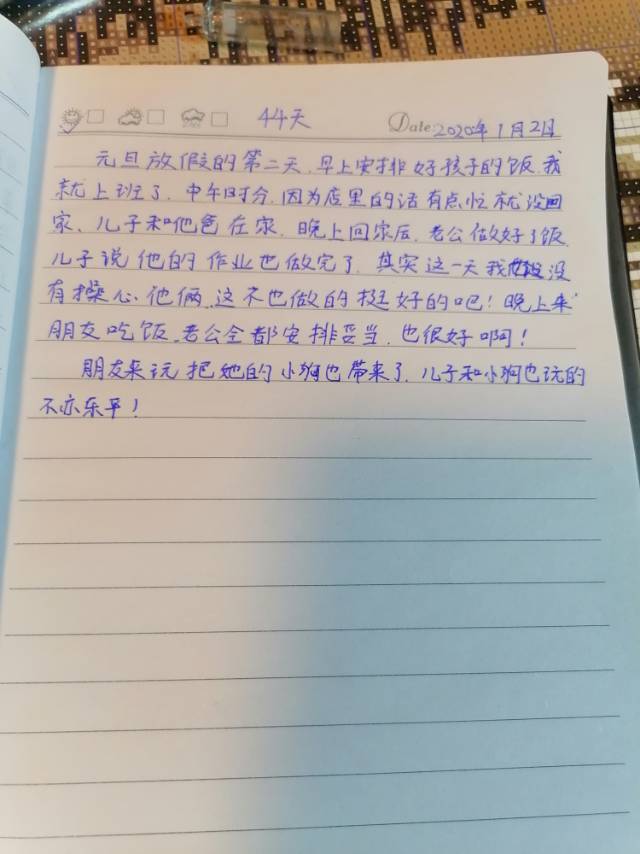 44天 Date: 2020年1月2日
元旦放假的第二天,早上安排好孩子的饭,我
就上班了,中午时分,因为店里的话有点忙就没回
家、儿子和他爸在家,晚上回家后,老公做好了饭,
儿子说他的作业也做完了,其实这一天我没
有操心、他俩这不也做的挺好的吧!晚上来
朋友吃饭,老公全都安排妥当,也很好啊!
朋友来玩把她的小狗也带来了,儿子和小狗也玩的
不亦乐乎!